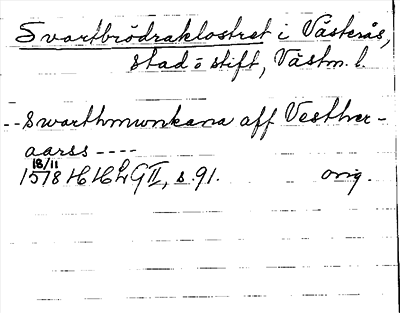 Svartbrödraklostret i Västerås,
stad o stift, Västm. l.
-- Swarthmunkana aff Vesthver-
aarss ----
18/11
1578 HHLG II, s. 91. orig.